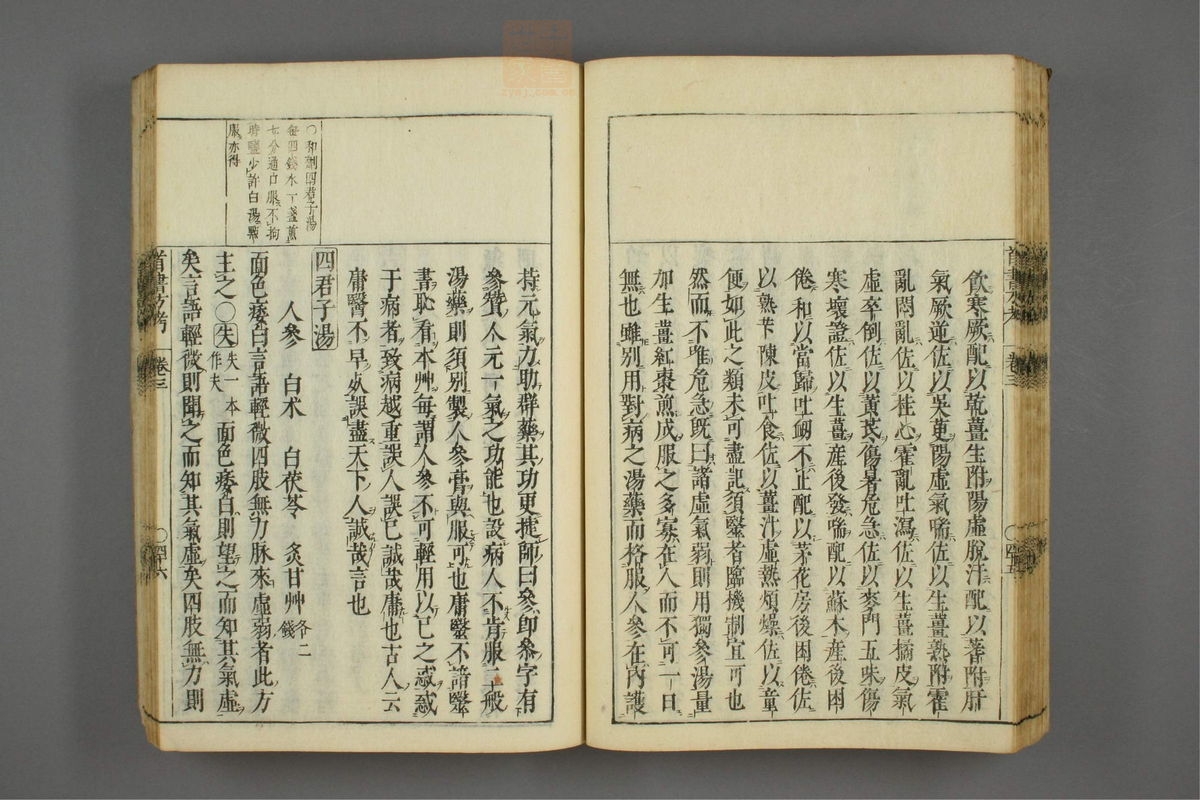 飲寒厥配以乾薑生附陽虛脫汗配以蓍附肝
氣厥道佐以吳茰陽虛氣喘佐以生薑熟附霍
亂悶亂佐以桂心霍亂吐瀉佐以生薑橘皮氣
虛卒倒佐以黃芪傷暑危急佐以麥門五味傷
寒壞證佐以生薑產後發喘配以蘇木產後困
倦和以當歸吐衂不止配以茅花房後困倦佐
以熟苄陳皮吐食佐以薑汁虛熱煩燥佐以童
便如此之類未可盡記須毉者臨機制宜可也
然而不唯危急既曰諸虛氣弱則用獨參湯量
加生薑紅棗煎成服之多寡在人而不可一日
無也雖別用對病之湯藥而格服人參在內護
首書方考
卷三
〇四十五
持元氣力助群藥其功更捷師曰參即叅字有
參贊人元一氣之功能也設病人不肯服一般
湯藥則須別製人參膏與服可也庸毉不諳毉
書恥看本艸每謂人參不可輕用以己之惑惑
于病者致病越重誤人誤己誠哉庸也古人云
庸醫不早死誤盡天下人誠哉言也
四君子湯
人參 白朮 白茯苓 炙甘艸各二錢
面色痿白言語輕微四肢無力脉來虛弱者此方
主之〇失失一本作夫面色痿白則望之而知其氣虛
矣言語輕微則聞之而知其氣虛矣四肢無力則
〇和劑四君子湯
每四錢水一盞煎
七分通口服不拘
時鹽少許白湯點
服亦得
首書方考
卷三
〇四十六